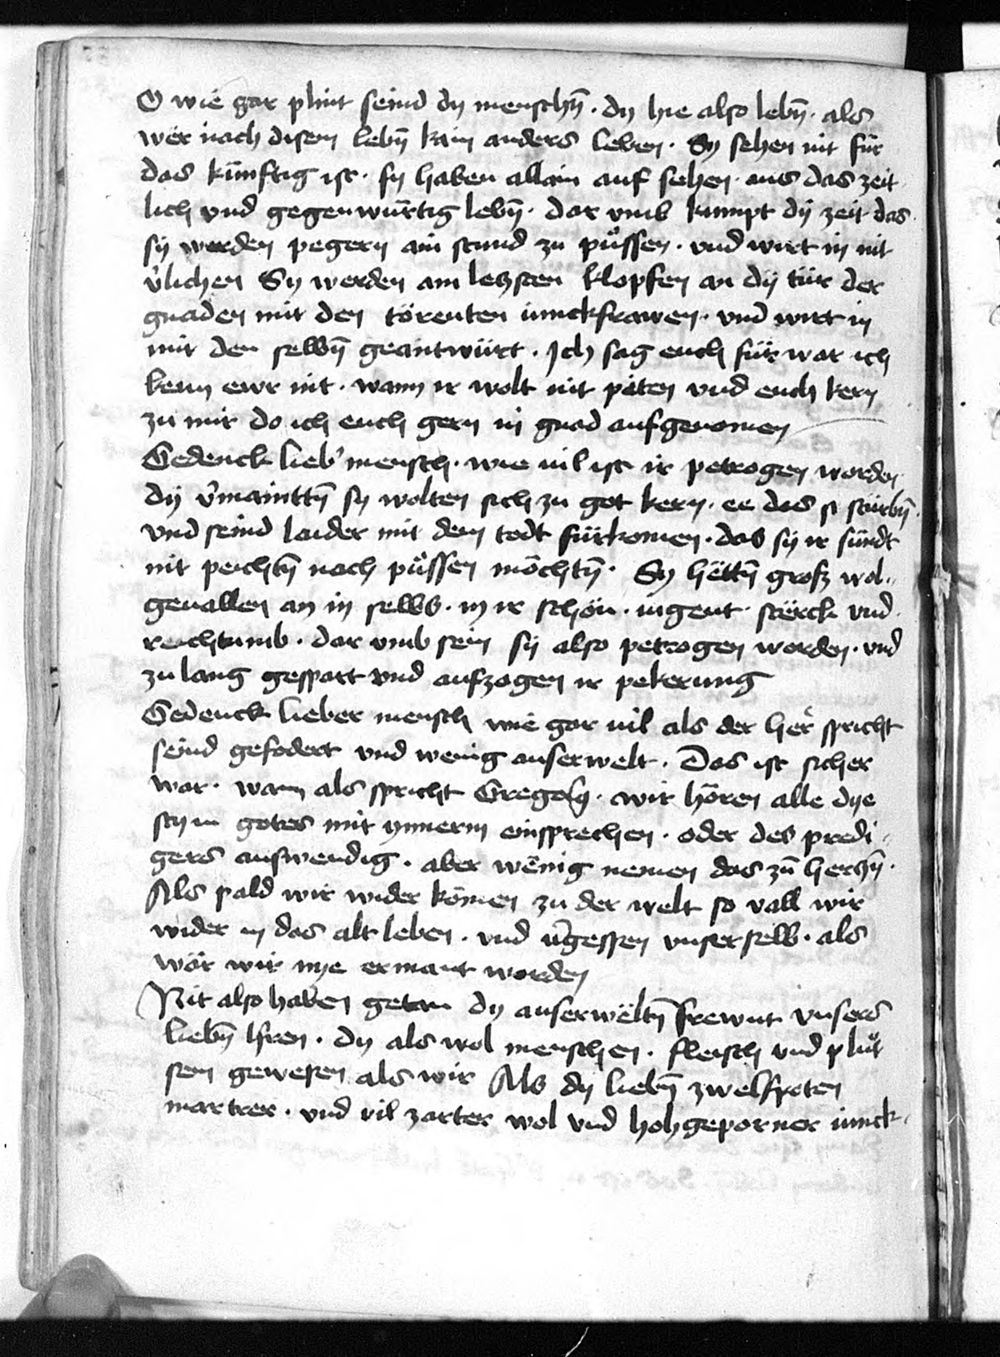 O wie gar plint seind dy menschn̄ · dy hie also lebn̄ · als
wër nach disem lebn̄ kain anders leben · Sy sehen nit für
das künftig ist · sy haben allain auf sehen · aus das zeit
lich vnd gegenwürtig lebn̄ · dar vmb kumpt dÿ zeit das
sÿ werden pegern ain stund zu püssen · vnd wirt in nit
v̓lichen Sy werden am letzsten klopfen an dÿ tür der
gnaden mit den törenten iunckfrawen · vnd wirt in
mit den selbn̄ geantwürt · Ich sag euch für war ich
kenn ewr nit · wann ir wolt nit päten vnd euch kern
zu mir do ich euch gern in gnad aufgenomen
Gedenck lieb' mensch · wie uil ist ir petrogen worden
dÿ v̓maintn̄ sy wolten sich zu got kern · ee das si stürbn̄
vnd seind laider mit dem todt fürkomen · das sÿ ir sündt
nit peichtn̄ noch püssen möchtn̄ · Sy hëttn̄ grosz wol⸗
geuallen an in selbs · in ir schön · iugent · sterck vnd
reichtumb · dar vmb sein sÿ also petrogen worden · vnd
zu lang gespart vnd aufzogen ir pekerung
Gedenck lieber mensch wie gar uil als der her̓ spricht
seind gefodert vnd wenig auserwelt · Das ist sicher
war · wann als spricht Grego · wir hören alle dye
stym gotes mit ynnerm einsprechen · oder des predi⸗
gers auswendig · aber wënig nemen das zū hertzn̄ ·
Als pald wir wider kömen zu der welt so vall wir
wider in das alt leben · vnd v̓gessen vnser selb · als
wär wir nye ermant worden
Nit also haben getan dy auserwëltn̄ frewnt vnsers
liebn̄ hren · dy als wol menschen · fleisch vnd plüt
sein gewesen als wir Als dy liebn̄ zwelfpoten
martrer · vnd vil zarter wol vnd hohgeporner iunck⸗